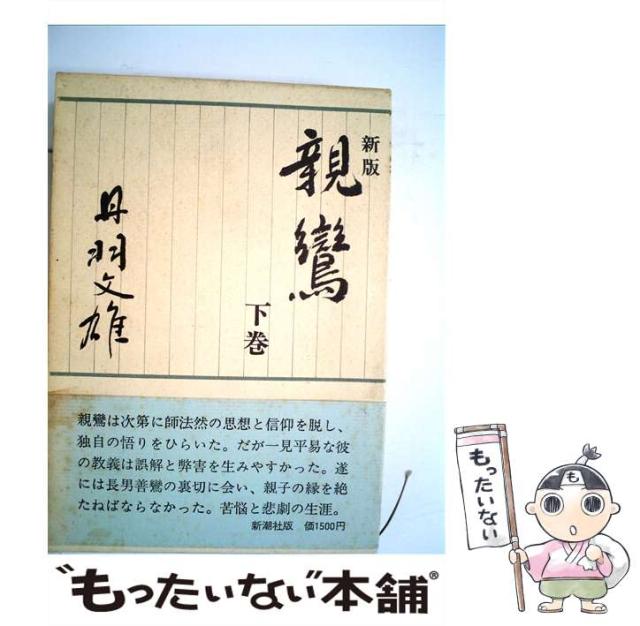 新版
親鸞
下巻
丹羽文雄
親鸞は次第に師法然の思想と信仰を脱し、
独自の悟りをひらいた。だが一見平易な彼
の教義は誤解と弊害を生みやすかった。遂
には長男善鸞の裏切に会い、親子の縁を絶
たねばならなかった。苦悩と悲劇の生涯。
新潮社版 価1500円
もったいない
も
"もったいない"本舗®